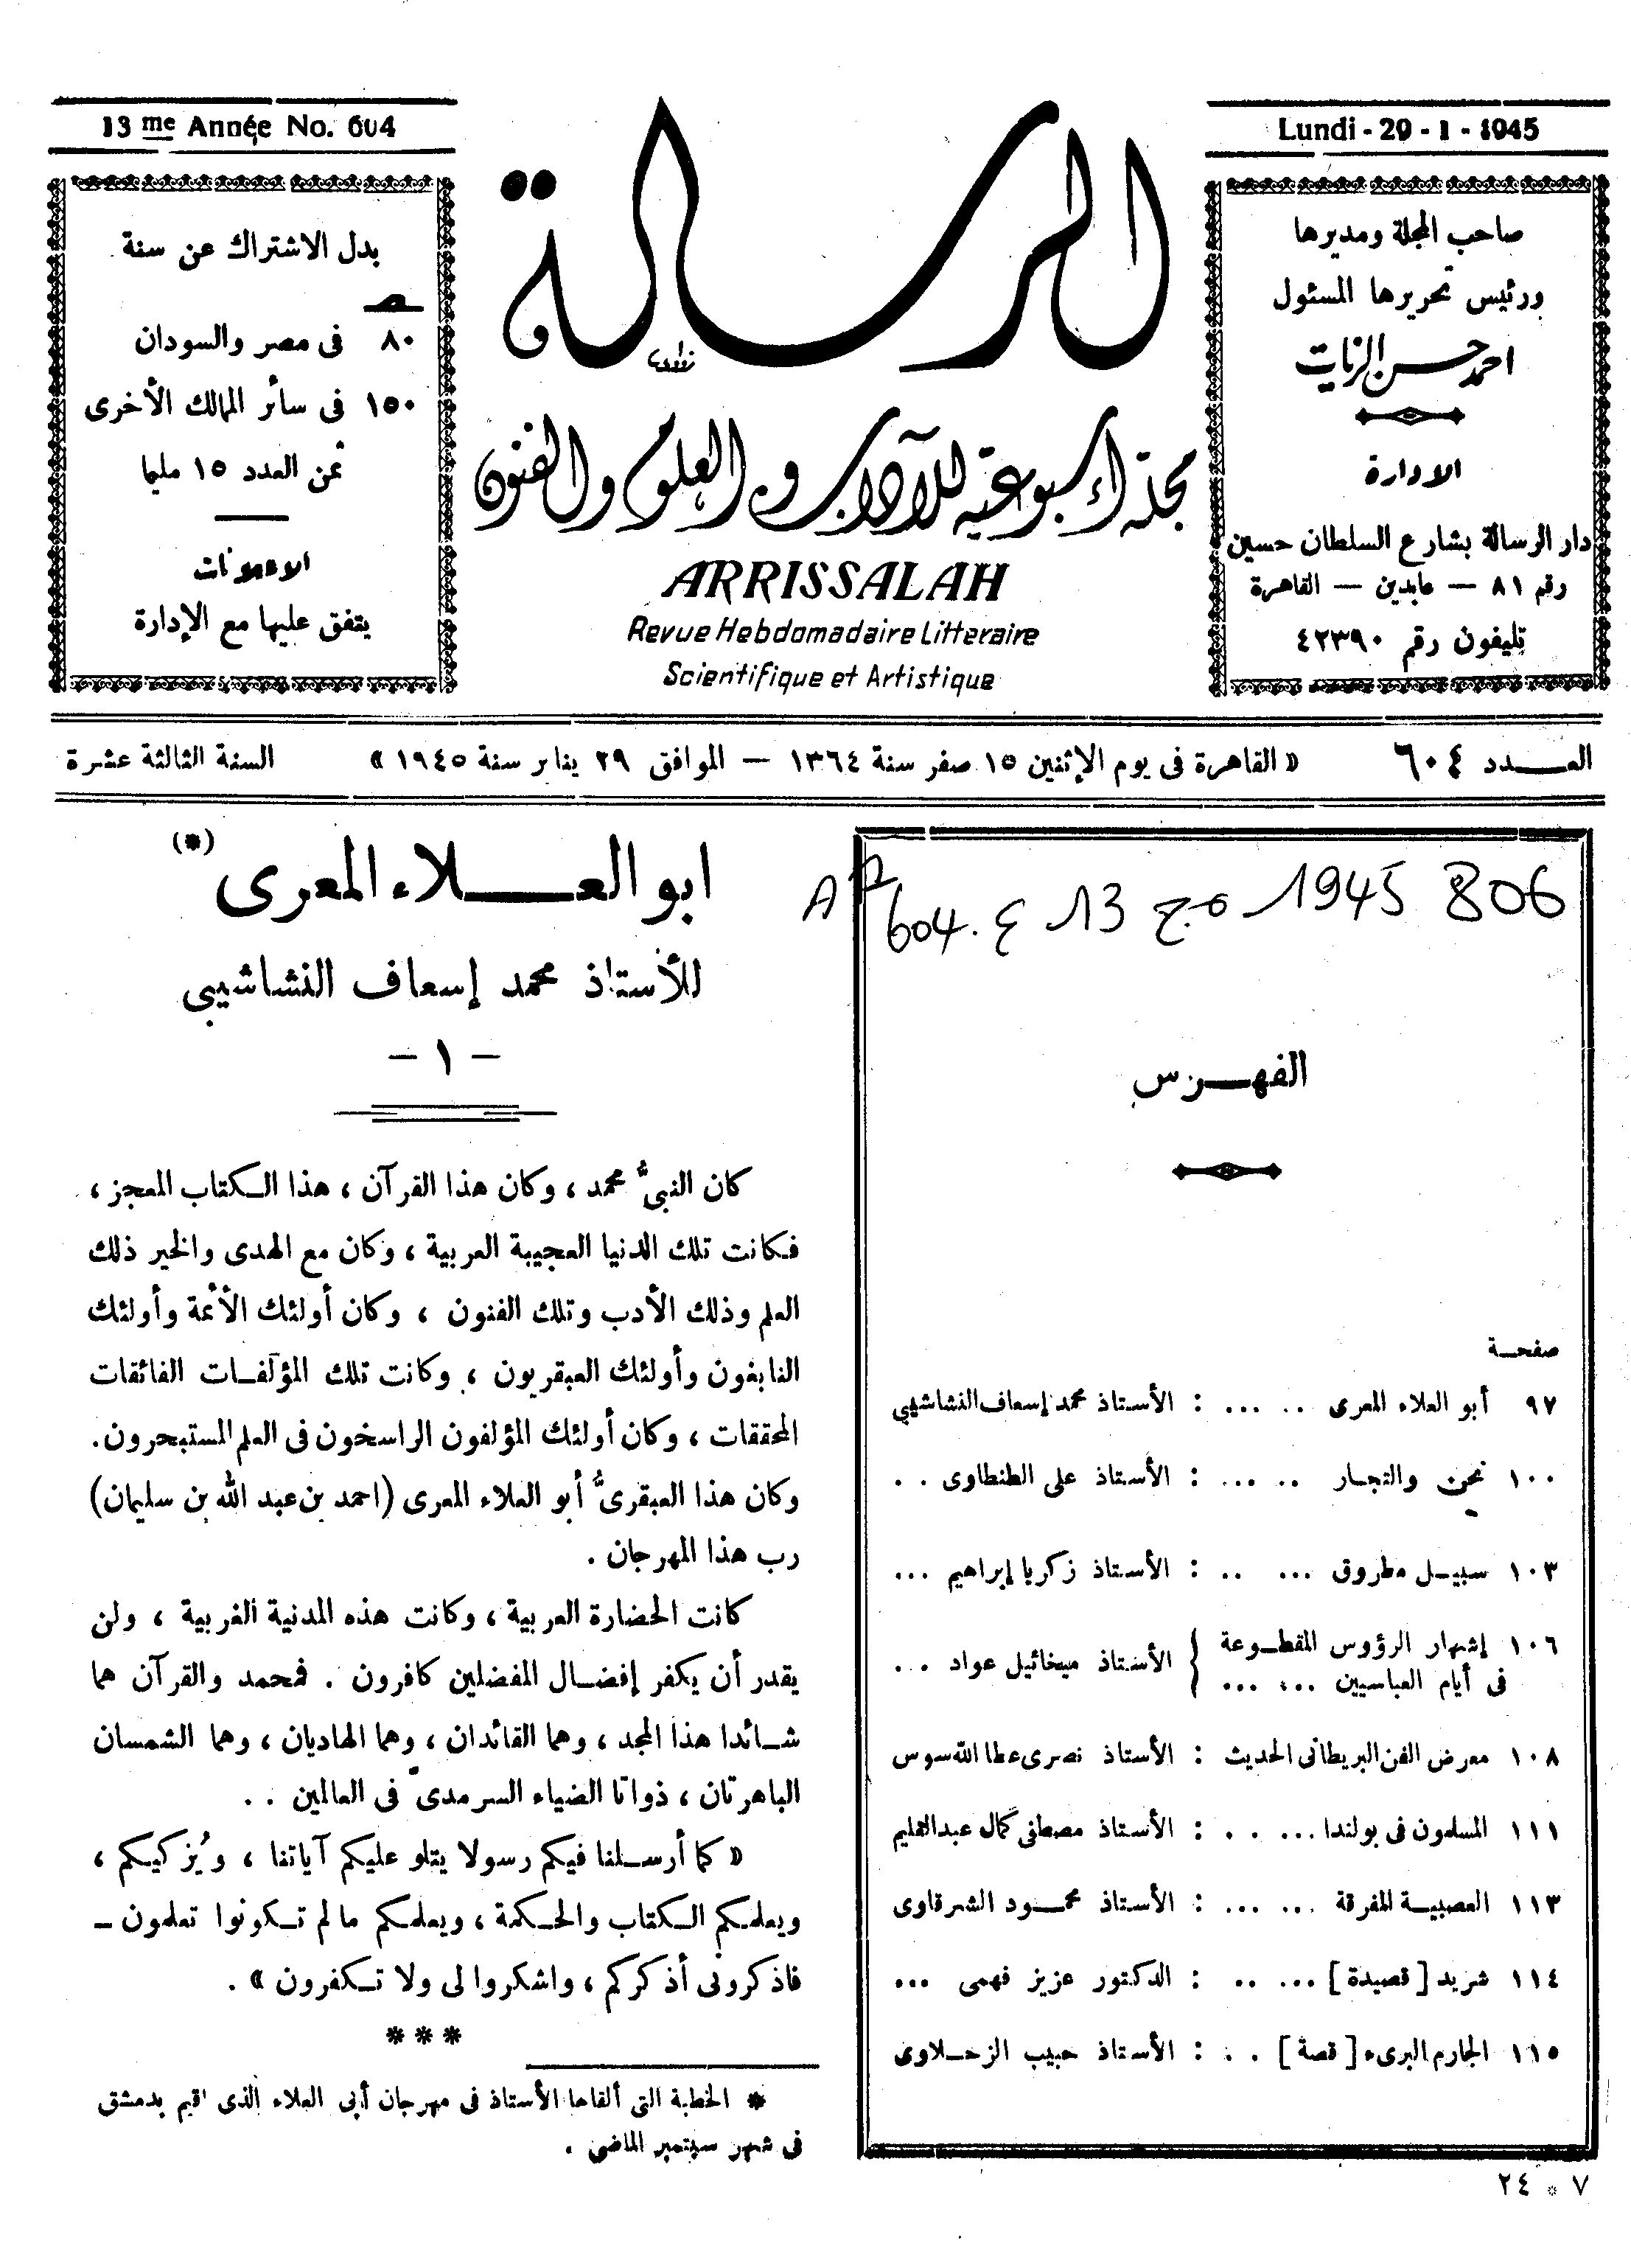 13 me Année No. 604
Lundi - 29 - 1 - 1945
صاحب المجلة ومديرها
ورئيس تحريرها المسئول
احمد حسن الزيات
الادارة
دار الرسالة بشارع السلطان حسين
رقم ٨١ — عابدين — القاهرة
تليفون رقم ٤٢٣٩٠
الرسالة
مجلة أسبوعية للآداب والعلوم والفنون
ARRISSALAH
Revue Hebdomadaire Litteraire
Scientifique et Artistique
بدل الاشتراك عن سنة
ص
٨٠ فى مصر والسودان
١٥٠ فى سائر الممالك الأخرى
ثمن العدد ١٥ مليما
الاعلانات
يتفق عليها مع الإدارة
العـــدد ٦٠٤ « القاهرة فى يوم الإثنين ١٥ صفر سنة ١٣٦٤ — الموافق ٢٩ يناير سنة ١٩٤٥ » السنة الثالثة عشرة
806 1945 ج.٥ 13 ع 604.
الفهـــرس
صفحـة
٩٧ أبو العلاء المعرى .. ... : الأستاذ محمد إسعاف النشاشيبى
١٠٠ نحن والتجار .. ... : الأستاذ على الطنطاوى . .
١٠٣ سبيـل مطروق ... .. : الأستاذ زكريا إبراهيم ...
١٠٦ إشهار الرؤوس المقطـوعة
فى أيام العباسيين ... ... } الأستاذ ميخائيل عواد . .
١٠٨ معرض الفن البريطانى الحديث : الأستاذ نصرى عطا الله سوس
١١١ المسلمون فى بولندا ... . . : الأستاذ مصطفى كمال عبد العليم
١١٣ العصبيـة المفرقة ... ... : الأستاذ محمـود الشرقاوى
١١٤ شريد [ قصيدة ] ... .. : الدكتور عزيز فهمى ...
١١٥ الجارم البرىء [ قصة ] . . : الأستاذ حبيب الزحـلاوى
٧ * ٢٤
ابو العـــلاء المعرى (*)
للأستاذ محمد إسعاف النشاشيبى
— ١ —
كان النبىُّ محمد ، وكان هذا القرآن ، هذا الـكتاب المعجز ،
فـكانت تلك الدنيا العجيبة العربية ، وكان مع الهدى والخير ذلك
العلم وذلك الأدب وتلك الفنون ، وكان أولئك الأئمة وأولئك
النابغون وأولئك العبقريون ، وكانت تلك المؤلفـات الفائقات
المحققات ، وكان أولئك المؤلفون الراسخون فى العلم المستبحرون.
وكان هذا العبقرىُّ أبو العلاء المعرى (احمد بن عبد الله بن سليمان)
رب هذا المهرجان .
كانت الحضارة العربية ، وكانت هذه المدنية الغربية ، ولن
يقدر أن يكفر إفضـال المفضلين كافرون . فمحمد والقرآن هما
شـائدا هذا المجد ، وهما القائدان ، وهما الهاديان ، وهما الشمسان
الباهرتان ، ذواتا الضياء السرمدىّ فى العالمين . .
« كما أرسـلنا فيكم رسولا يتلو عليكم آياتنا ، ويُزكيـكم ،
ويعلمـكم الـكتاب والحـكمة ، ويعلمـكم مالم تـكونوا تعلمون ـ
فاذكرونى أذكركم ، واشكروا لى ولا تـكفرون » .
* * *
* الخطبة التى ألقاها الأستاذ فى مهرجان أبى العلاء الذى اقيم بدمشق
فى شهر سبتمبر الماضى .